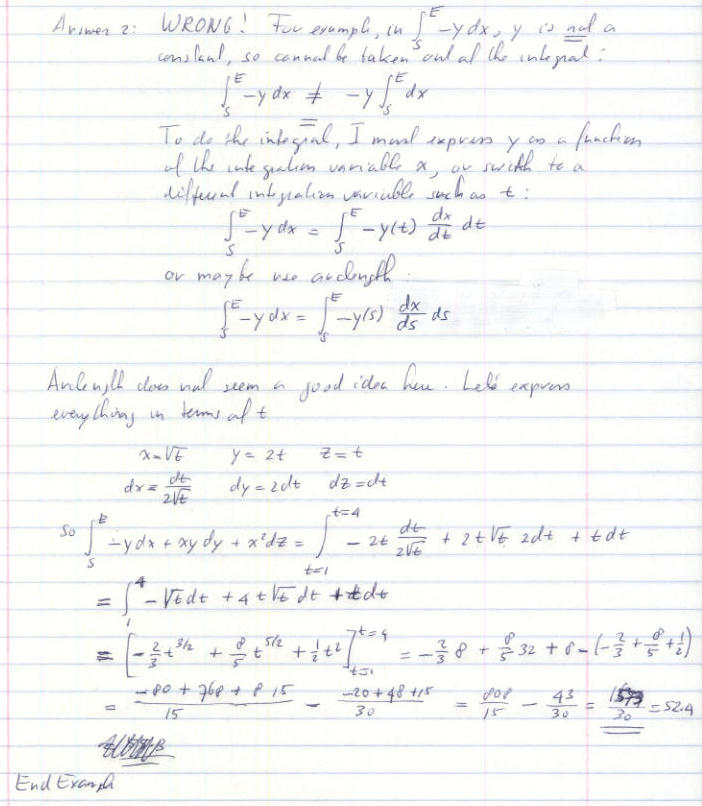 Answer 2: WRONG! For example, in ∫_S^E -y dx, y is not a
constant, so cannot be taken out of the integral:
∫_S^E -y dx ≠ -y ∫_S^E dx
To do the integral, I must express y as a function
of the integration variable x, or switch to a
different integration variable such as t:
∫_S^E -y dx = ∫_S^E -y(t) dx/dt dt
or maybe use arclength:
∫_S^E -y dx = ∫_S^E -y(s) dx/ds ds
Arclength does not seem a good idea here. Let's express
everything in terms of t
x=√t y = 2t z = t
dx = dt/2√t dy = 2dt dz = dt
So ∫_S^E -y dx + xy dy + x²dz = ∫_{t=1}^{t=4} - 2t dt/2√t + 2t√t 2dt + t dt
= ∫_1^4 -√t dt + 4t√t dt + t dt
= [-2/3 t^{3/2} + 8/5 t^{5/2} + 1/2 t²]_{t=1}^{t=4} = -2/3 8 + 8/5 32 + 8 - (-2/3 + 8/5 + 1/2)
= (-80 + 768 + 8 15)/15 - (-20 + 48 + 15)/30 = 808/15 - 43/30 = 1573/30 = 52.4
End Example